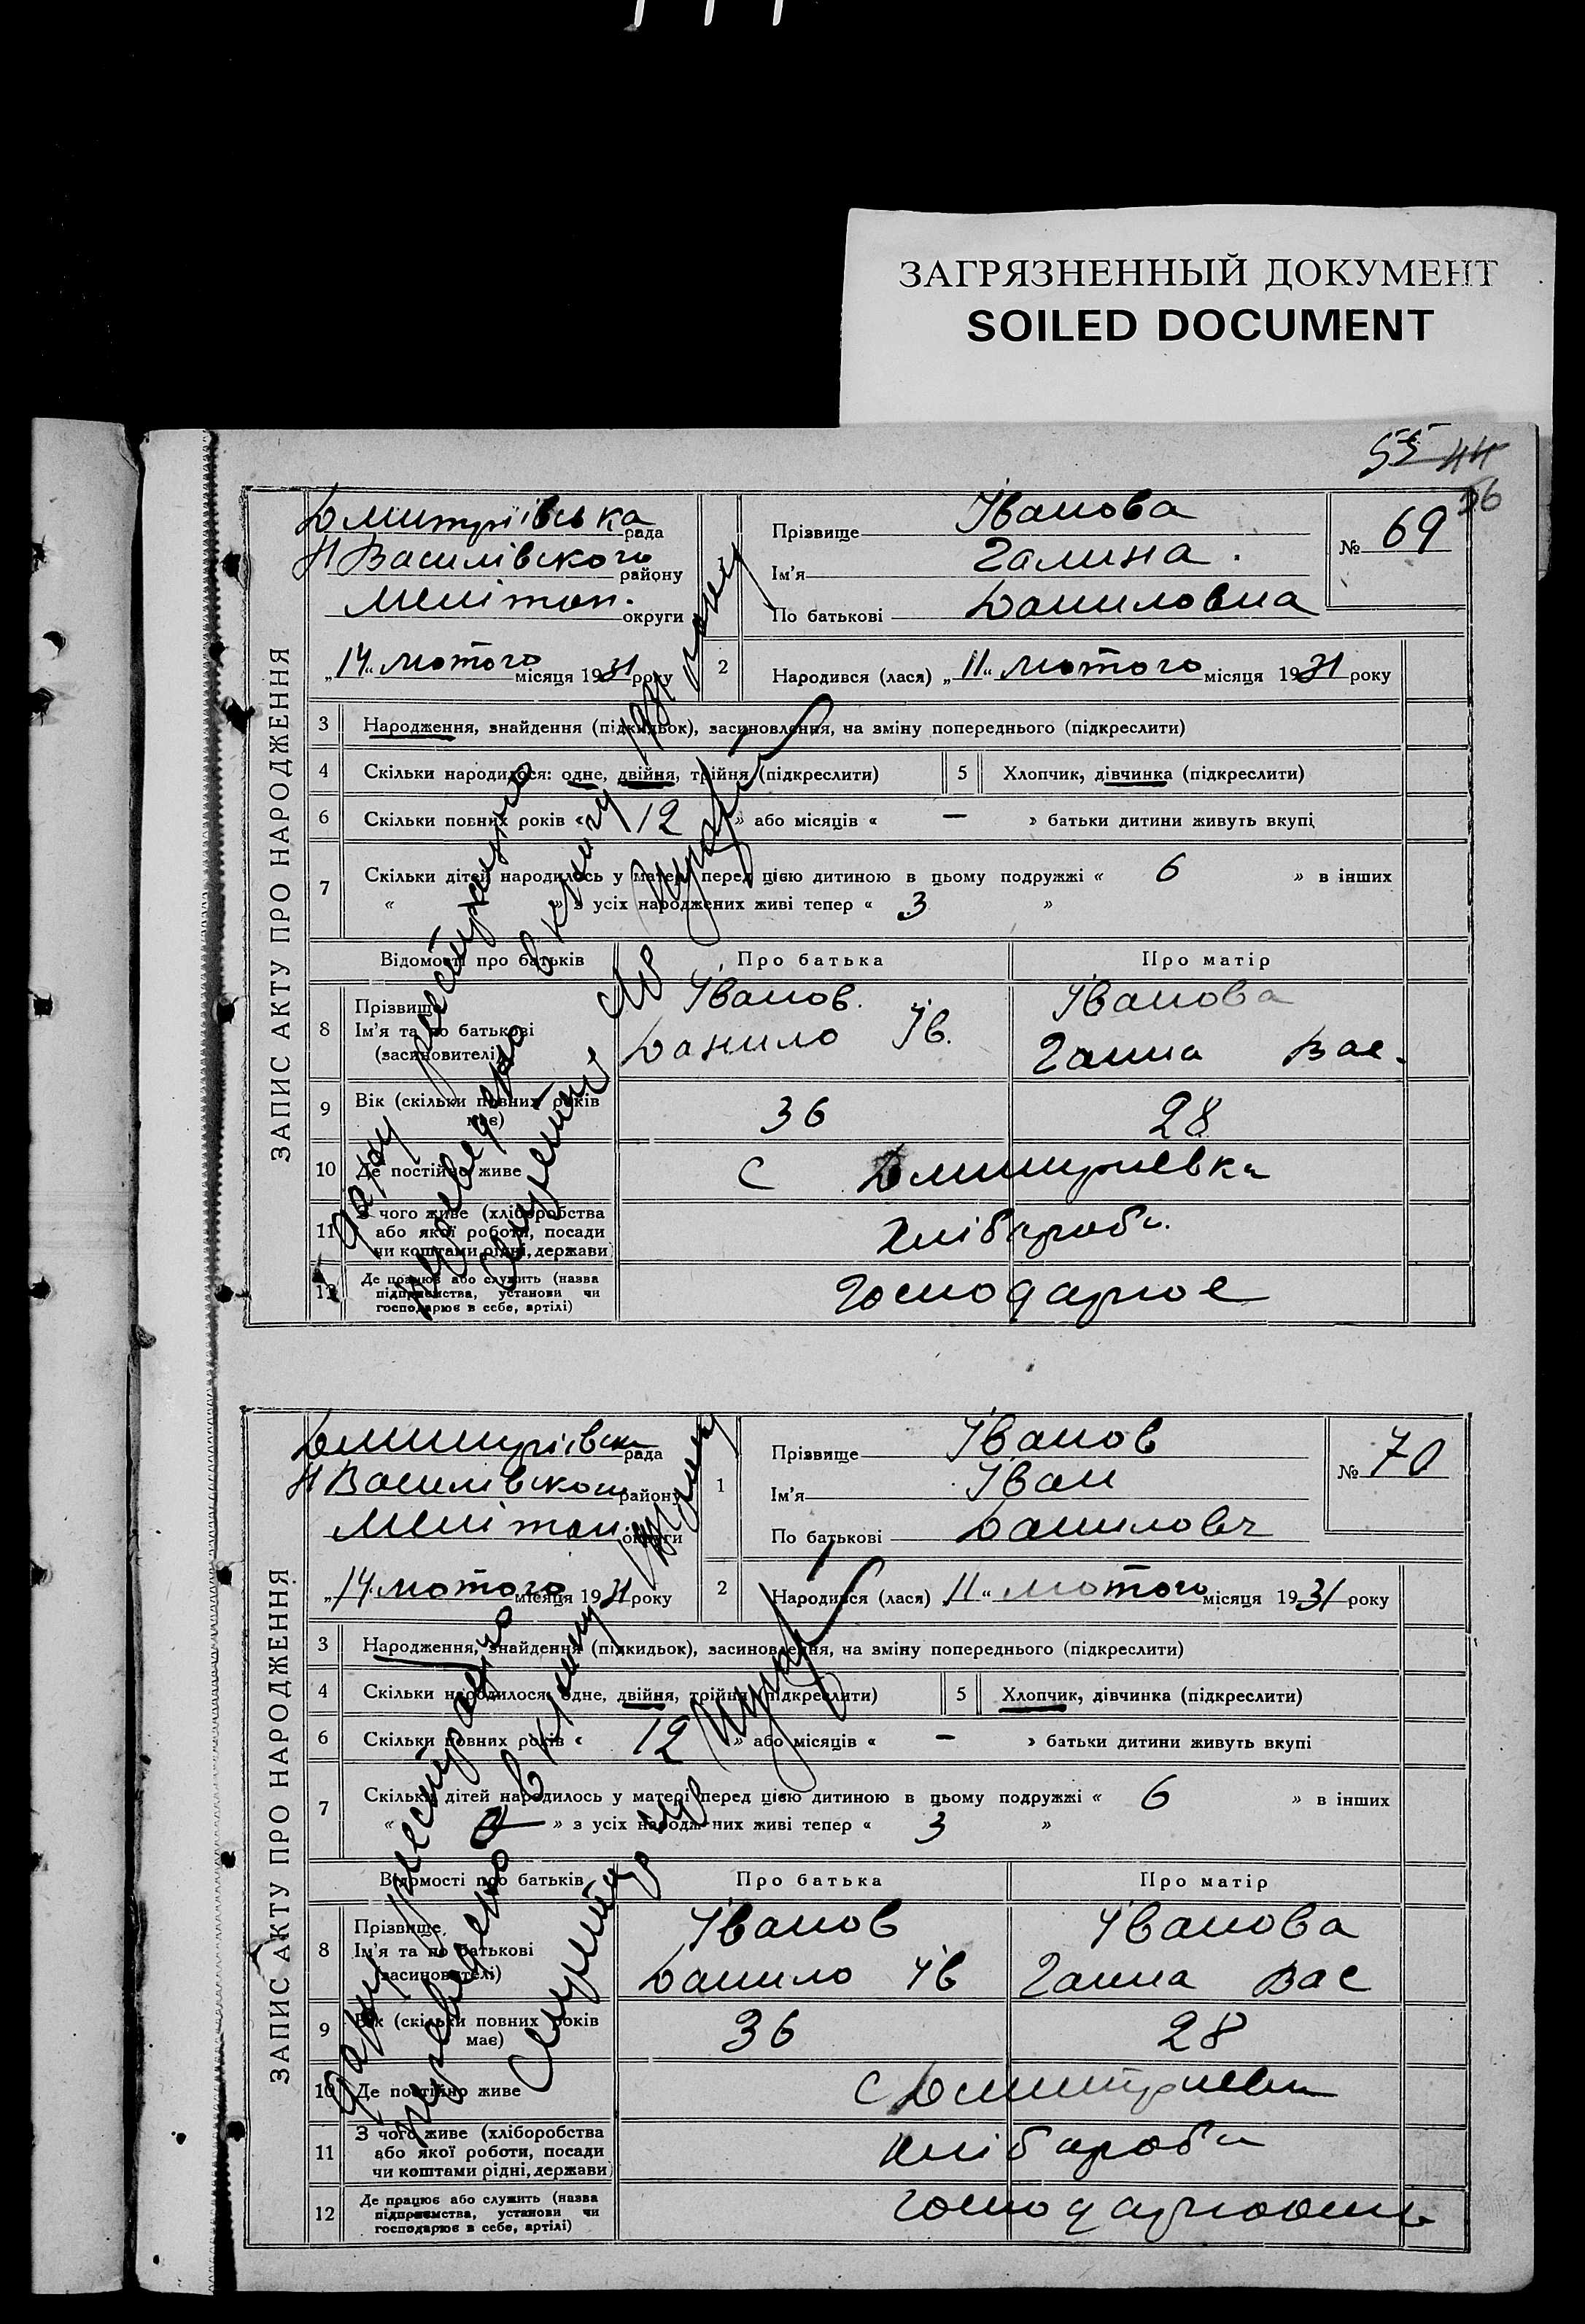 ЗАГРЯЗНЕННЫЙ ДОКУМЕНТ
SOILED DOCUMENT
55 44
56
ЗАПИС АКТУ ПРО НАРОДЖЕННЯ
Дмитріївська рада
Н Василівского району
Меліт округи
„14“ лютого місяця 1931 року
1
Прізвище Іванова
Ім'я Галина.
По батькові Даниловна
№ 69
2 Народився (лася) „11“ лютого місяця 1931 року
3 Народження, знайдення (підкидьок), засиновлення, на зміну попереднього (підкреслити)
4 Скільки народилося: одне, двійня, трійня (підкреслити) 5 Хлопчик, дівчинка (підкреслити)
6 Скільки повних років « 12 » або місяців « — » батьки дитини живуть вкупі
7 Скільки дітей народилось у матері перед цією дитиною в цьому подружжі « 6 » в інших
« » з усіх народжених живі тепер « 3 »
Відомості про батьків Про батька Про матір
8 Прізвище Іванов. Іванова
Ім'я та по батькові Данило Ів. Ганна Вас.
(засиновителі)
9 Вік (скільки повних років має) 36 28
10 Де постійно живе с Дмитриевка
11 З чого живе (хліборобства
або якої роботи, посади
чи коштами рідні, держави)
12 Де працює або служить (назва
підприємства, установи чи
господарює в себе, артілі)
дану реєстрацію
переведено в книгу 1931 року
ЗАПИС АКТУ ПРО НАРОДЖЕННЯ
Дмитріївська рада
Н Василівского району
Меліт округи
„14“ лютого місяця 1931 року
1
Прізвище Іванов
Ім'я Іван
По батькові Данилович
№ 70
2 Народився (лася) 11“ лютого місяця 1931 року
3 Народження, знайдення (підкидьок), засиновлення, на зміну попереднього (підкреслити)
4 Скільки народилося: одне, двійня, трійня (підкреслити) 5 Хлопчик, дівчинка (підкреслити)
6 Скільки повних років « 12 » або місяців « — » батьки дитини живуть вкупі
7 Скільки дітей народилось у матері перед цією дитиною в цьому подружжі « 6 » в інших
« » з усіх народжених живі тепер « 3 »
Відомості про батьків Про батька Про матір
8 Прізвище Іванов Іванова
Ім'я та по батькові Данило Ів Ганна Вас
(засиновителі)
9 Вік (скільки повних років має) 36 28
10 Де постійно живе с Дмитриевка
11 З чого живе (хліборобства
або якої роботи, посади
чи коштами рідні, держави)
12 Де працює або служить (назва
підприємства, установи чи
господарює в себе, артілі)
дану реєстрацію
переведено в книгу